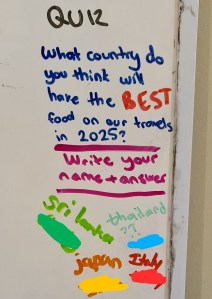 QUIZ
What country do
you think will
have the BEST
food on our travels
in 2025?
Write your
name + answer
Sri Lanka
thailand
??
japan Italy